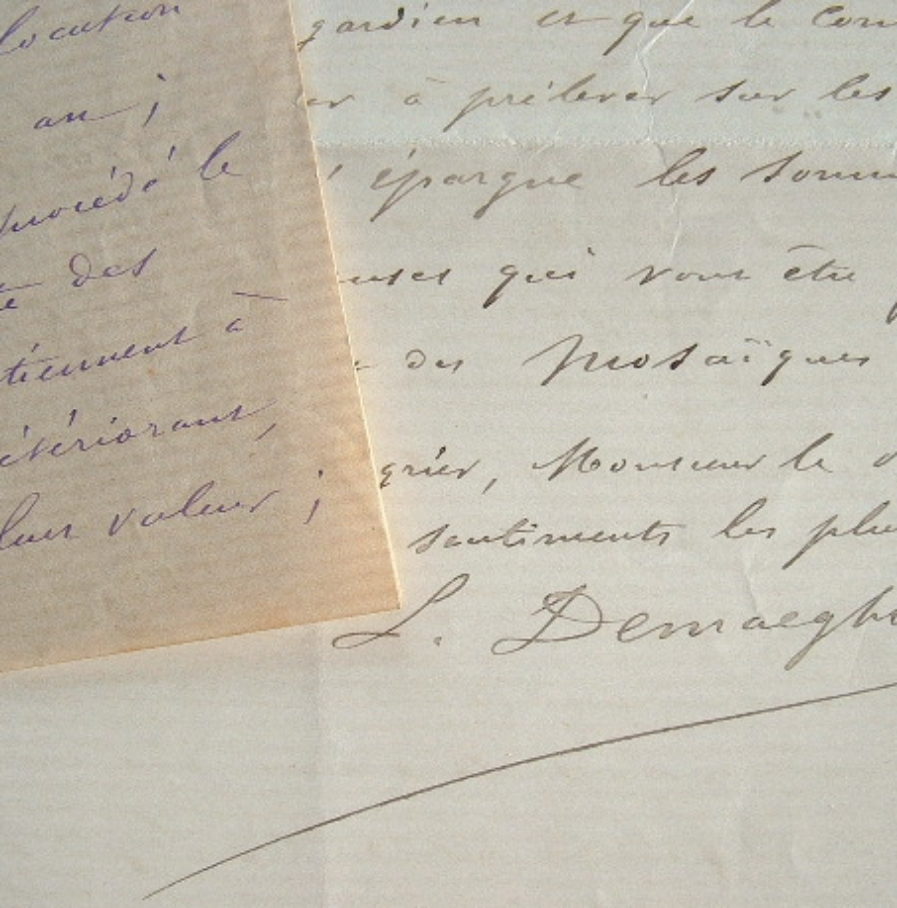 location
an ;
procédé le
des
tiennent à
étériorant,
leur valeur ;
gardien et que le Con
er à prélever sur les
épargne les somm
uses qui vont être
des Mosaïques
gréer, Monsieur le
sentiments les plu
L. Demaegh